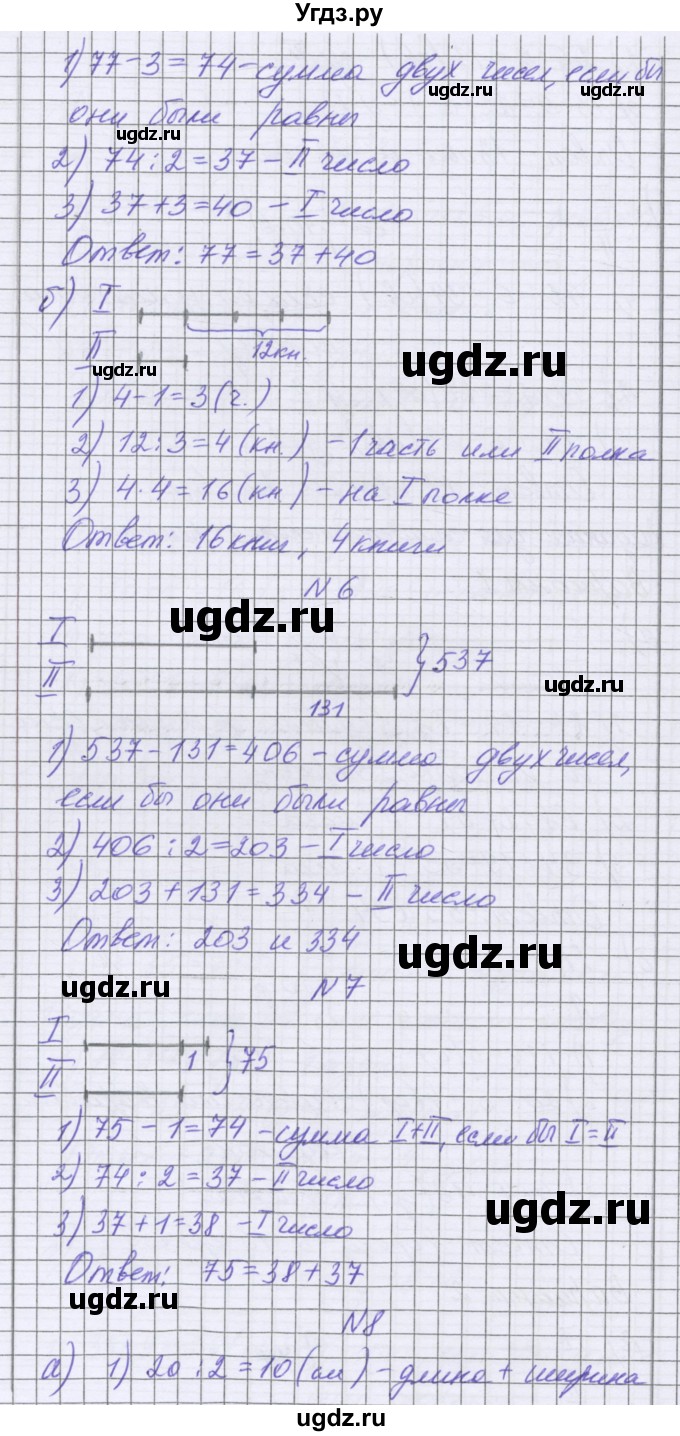 Угдз.ру
1) 77-3=74-сумма двух чисел, если бы
они были равны
ugdz.ru
ugdz.ru
ugdz.ru
2) 74:2=37-II число
3) 37+3=40-I число
Ответ: 77=37+40
б) I
12кн.
II
ugdz.ru
ugdz.ru
1) 4-1=3(ч.)
2) 12:3=4(кн.) -1 часть или II полка
3) 4·4=16(кн) - на I полке
Ответ: 16 книг, 4 книги
N6
ugdz.ru
I
II
131
}537
ugdz.ru
1) 537-131=406-сумма двух чисел,
если бы они были равны
2) 406:2=203-I число
3) 203+131=334-II число
Ответ: 203 и 334
ugdz.ru
ugdz.ru
N7
I
1
}75
II
1) 75-1=74-сумма I+II, если бы I=II
2) 74:2=37-II число
ugdz.ru
3) 37+1=38-I число
Ответ: 75=38+37
ugdz.ru
N8
а) 1) 20:2=10(см)-длина+ширина
ugdz.ru